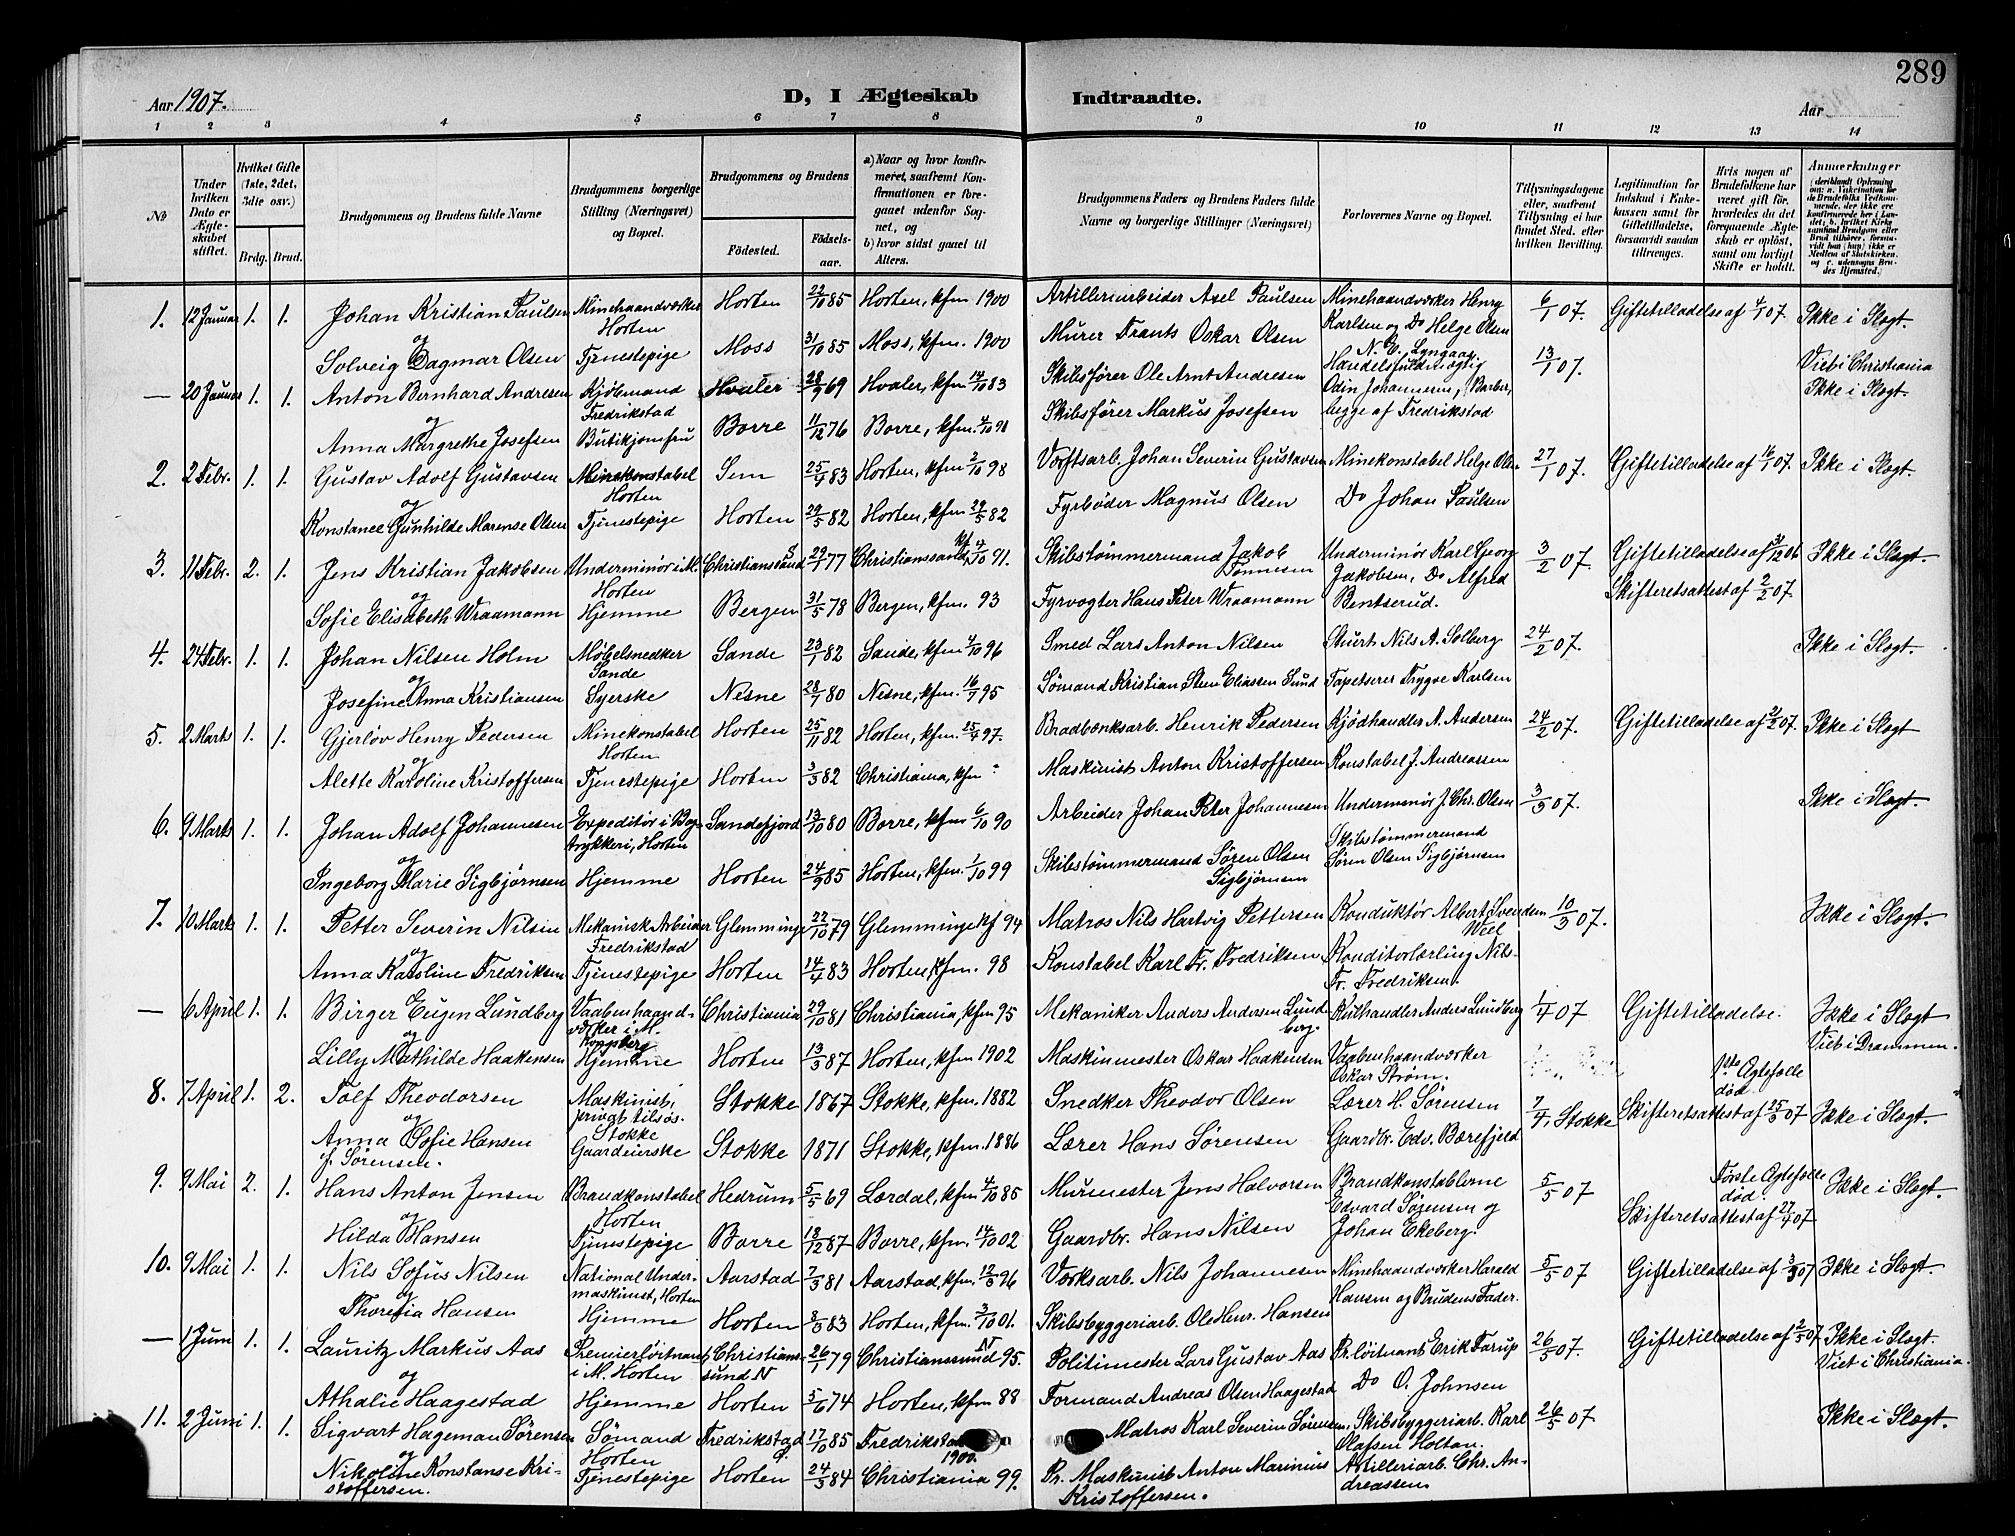 289
Aar 1907.
D, I Ægteskab Indtraadte.
Aar
1 2 3 4 5 6 7 8 9 10 11 12 13 14
No
Under hvilken Dato er Ægteskabet stiftet.
Hvilket Gifte (1ste, 2det, 3die osv.)
Brdg. Brud.
Brudgommens og Brudens fulde Navne
Brudgommens borgerlige Stilling (Næringsvei) og Bopæl.
Brudgommens og Brudens
Fødested. Fødselsaar.
a) Naar og hvor konfirmeret, saafremt Konfirmationen er foregaaet udenfor Sognet, og
b) hvor sidst gaaet til Alters.
Brudgommens Faders og Brudens Faders fulde Navne og borgerlige Stillinger (Næringsvei)
Forlovernes Navne og Bopæl.
Tillysningsdagene eller, saafremt Tillysning ei har fundet Sted, efter hvilken Bevilling.
Legitimation for Indskud i Enkekassen samt for Giftetilladelse, forsaavidt saadan tiltrænges.
Hvis nogen af Brudefolkene har været gift før, hvorledes da det foregaaende Ægteskab er opløst, samt om lovligt Skifte er holdt.
Anmerkninger
1. 12 Januar 1. 1. Johan Kristian Paulsen Minehaandværker Horten Horten 22/10 85 Horten, kfm 1900 Artilleriarbeider Axel Paulsen Minehaandværker Henry Karlsen og Do Helge Olsen 6/1 07. Giftetilladelse af 4/1 07. Ikke i Slægt.
og
Solveig Dagmar Olsen Tjenestepige Moss 31/10 85 Moss, kfm. 1900 Murer Frants Oskar Olsen
— 20 Januar 1. 1. Anton Bernhard Andresen Kjøbmand Fredrikstad Hvaler 28/9 69 Hvaler, kfm 14/10 83 Skibsfører Ole Arnt Andresen N. C. Lyngaag, Handelsfuldmægtig Odin Johannesen, Barber, begge af Fredrikstad 13/1 07. Viet i Christiania Ikke i Slægt.
og
Anna Margrethe Josefsen Butikjomfru Borre 11/12 76 Borre, kfm. Skibsfører Markus Josefsen
2. 2 Febr. 1. 1. Gustav Adolf Gustavsen Minekonstabel Horten Sem 25/4 83 Horten, kfm 2/10 98 Værftsarb. Johan Severin Gustavsen Minekonstabel Helge Olsen 27/1 07. Giftetilladelse af 16/1 07. Ikke i Slægt.
og
Konstance Gunhilde Marense Olsen Tjenestepige Horten 29/5 82 Horten, kfm 29/5 82 Fyrbøder Magnus Olsen Do Johan Paulsen
3. 11 Febr. 2. 1. Jens Kristian Jakobsen Underminør i M. Horten Christianssand S 29/1 77 Christianssand, kf. 4/10 91. Skibstømmermand Jakob Tønnesen Underminør Karl Georg Jakobsen, Do Alfred Bentserud. 3/2 07. Giftetilladelse af Skifteretsattest af 2/2 07. Ikke i Slægt.
og
Sofie Elisabeth Wraamann Hjemme Bergen 31/5 78 Bergen, kfm. 93 Fyrvogter Hans Peter Wraamann
4. 24 Febr. 1. 1. Johan Nilsen Holm Møbelsnedker Sande Sande 23/1 82 Sande, kfm 4/10 96 Smed Lars Anton Nilsen Sturt. Nils A. Solberg 24/2 07. Ikke i Slægt.
og
Josefine Anna Kristiansen Syerske Nesne 28/7 80 Nesne, kfm. 16/7 95 Sømand Kristian Steen Eliassen Sund Tapetserer Trygve Karlsen
5. 2 Marts 1. 1. Gjerløv Henry Pedersen Minekonstabel Horten Horten 25/11 82 Horten, kfm. 25/4 97. Bradbænksarb. Henrik Pedersen Kjødhandler A. Andersen 24/2 07. Giftetilladelse af Ikke i Slægt
og
Alette Karoline Kristoffersen Tjenestepige Horten 3/3 82 Christiania, kfm Maskinist Anton Kristoffersen Konstabel J. Andreassen
6. 9 Marts 1. 1. Johan Adolf Johannesen Expeditør i Bogtrykkeri, Horten Sandefjord 13/10 80 Borre, kfm 6/10 90 Arbeider Johan Peter Johannesen Underminør J. Chr. Olsen 3/3 07. Ikke i Slægt.
og
Ingeborg Marie Sigbjørnsen Hjemme Horten 24/9 85 Horten, kfm. 1/10 99 Skibstømmermand Søren Olsen Sigbjørnsen Skibstømmermand Søren Olsen Sigbjørnsen
7. 10 Marts 1. 1. Petter Severin Nilsen Mekanisk Arbeider Fredrikstad Glemminge 22/10 79 Glemminge kf 94 Matros Nils Hartvig Pettersen Konduktør Albert Svendsen Weel 10/3 07. Ikke i Slægt.
og
Anna Karoline Fredriksen Tjenestepige Horten 14/4 83 Horten, kfm. 98 Konstabel Karl Fr. Fredriksen Konditorlærling Nils Fr. Fredriksen.
— 6 April 1. 1. Birger Eugen Lundberg Vaabenhaandværker i M. Kongsberg Christiania 29/10 81 Christiania, kfm 95 Mekaniker Anders Andersen Lundberg. Kulhandler Anders Lundberg 1/4 07 Giftetilladelse. Ikke i Slægt Viet i Drammen.
og
Lilly Mathilde Haakensen Hjemme Horten 13/3 87 Horten, kfm 1902 Maskinmester Oskar Haakensen Vaabenhaandværker Oskar Strøm.
8. 7 April 1. 2. Tolf Theodorsen Maskinist, privat tilsøs. Stokke Stokke 1867 Stokke, kfm. 1882 Snedker Theodor Olsen Lærer H. Sørensen 7/4, Stokke Skifteretsattest af 25/3 07 1ste Ægtefælle død. Ikke i Slægt.
og
Anna Sofie Hansen f. Sørensen. Gaardeierske Stokke 1871 Stokke, kfm. 1886 Lærer Hans Sørensen Gaardbr. Edv. Bærefjeld
9. 9 Mai 2. 1. Hans Anton Jensen Brandkonstabel Horten Hedrum 5/5 69 Lærdal, kfm 4/10 85 Murmester Jens Halvorsen Brandkonstablerne Edvard Sørensen og Johan Ekeberg. 5/5 07 Skifteretsattest af 27/4 07 Første Ægtefælle død Ikke i Slægt.
og
Hilda Hansen Tjenestepige Borre 18/12 87 Borre, kfm. 14/10 02 Gaardbr. Hans Nilsen
10. 9 Mai 1. 1. Nils Sofus Nilsen National Undermaskinist, Horten Aarstad 7/3 81 Aarstad, kfm. Værksarb. Nils Johannesen Minehaandværker Harald Hansen og Brudens Fader. 5/5 07 Giftetilladelse af Ikke i Slægt.
og
Theresia Hansen Hjemme Horten 8/3 83 Horten, kfm. 3/10 01. Skibsbyggeriarb. Ole Henr. Hansen
— 1 Juni 1. 1. Lauritz Markus Aas Premierløitnant i M. Horten Christianssund N 26/1 79 Christianssund N 95. Politimester Lars Gustav Aas Pr. løitnant Erik Tarup 26/5 07. Giftetilladelse af 2/5 07 Ikke i Slægt. Viet i Christiania.
og
Athalie Haagestad Hjemme Horten 5/6 74 Horten, kfm 88 Formand Andreas Olsen Haagestad Do O. Johnsen
11. 2 Juni 1. 1. Sigvart Hageman Sørensen Sømand Horten Fredrikstad 17/10 85 Fredrikstad 1900. Matros Karl Severin Sørensen. Skibsbyggeriarb. Karl Olafsen Holtan. 26/5 07. Ikke i Slægt.
og
Nikoline Konstanse Kristoffersen. Tjenestepige Horten 24/3 84 Christiania 99. Pr. Maskinist Anton Marinius Kristoffersen. Artilleriarb. Chr. Andreassen.